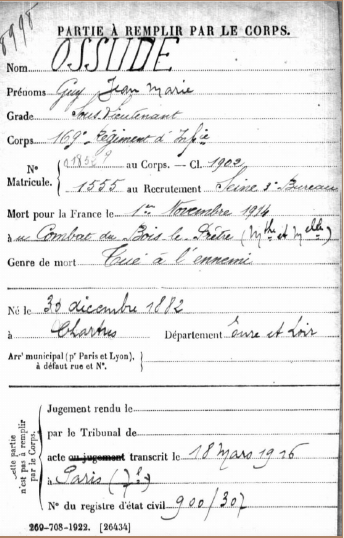 8998
PARTIE À REMPLIR PAR LE CORPS.
Nom OSSUDE
Prénoms Guy Jean Marie
Grade Sous Lieutenant
Corps 169e Régiment d'Infie
N° Matricule. { au Corps. — Cl. 1902
1555 au Recrutement Seine 3e Bureau
Mort pour la France le 1er Novembre 1914
à au Combat du Bois le Prêtre (Mthe et Melle)
Genre de mort Tué à l'ennemi
Né le 30 décembre 1882
à Chartres Département Eure et Loir
Arrt municipal (pr Paris et Lyon), à défaut rue et N°. }
Cette partie n'est pas à remplir par le Corps.
Jugement rendu le
par le Tribunal de
acte ou jugement transcrit le 18 Mars 1916
à Paris (7e)
N° du registre d'état civil 900/307
269-708-1922. [26434]